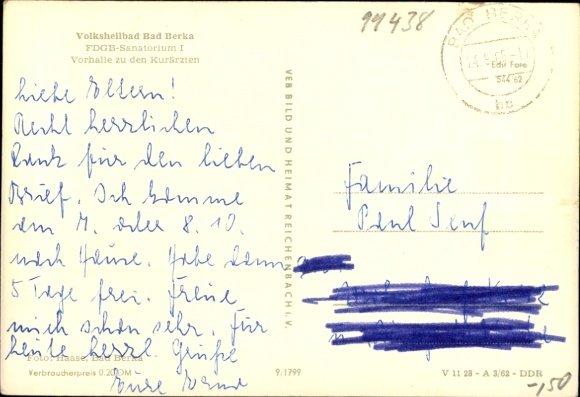 99438
Volksheilbad Bad Berka
FDGB-Sanatorium I
Vorhalle zu den Kurärzten
BAD BERKA
Echt Foto
544 62
Liebe Eltern!
Recht herzlichen
Dank für den lieben
Brief. Ich komme
am 7. oder 8. 10.
nach Hause. Habe dann
5 Tage frei. Freue
mich schon sehr. Für
heute herzl. Grüße
Eure
VEB BILD UND HEIMAT REICHENBACH i. V.
Familie
Paul Senf
Foto: Haase, Bad Berka
Verbraucherpreis 0,20 DM
9.1799
V 11 28 - A 3/62 - DDR
-,50